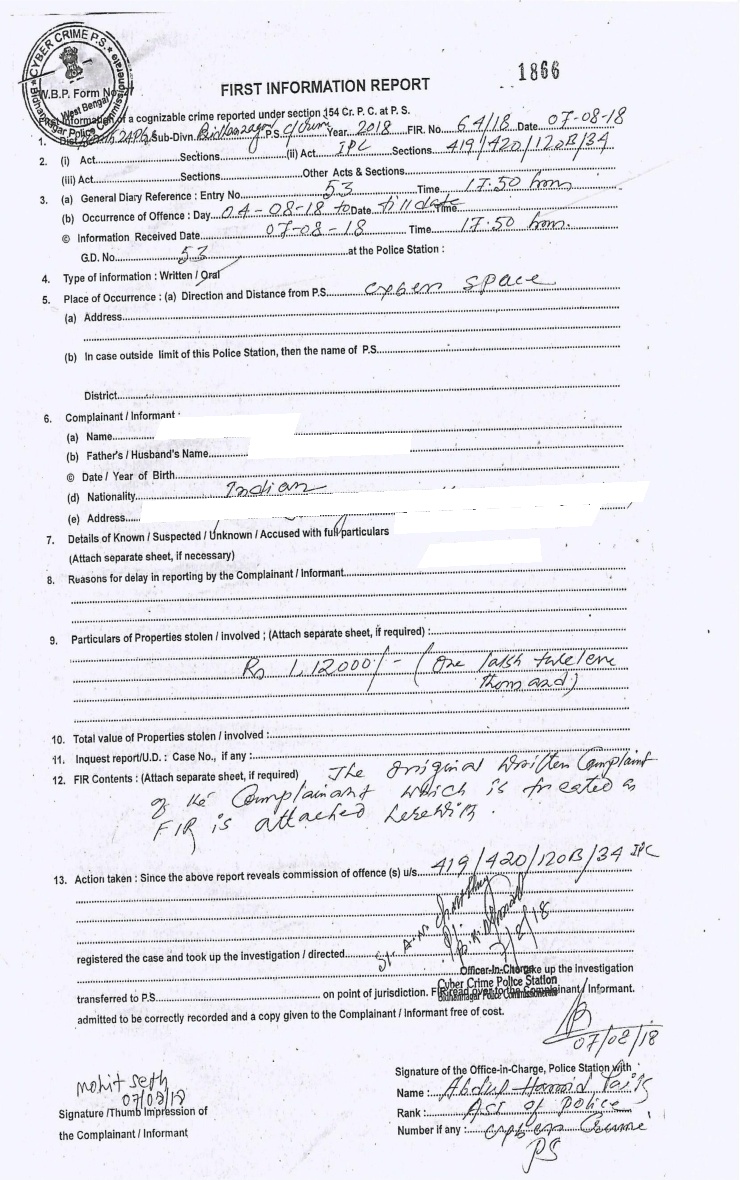 1866
CYBER CRIME P.S.
Bidhannagar Police Commissionerate
West Bengal
W.B.P. Form No
FIRST INFORMATION REPORT
First Information of a cognizable crime reported under section 154 Cr. P. C. at P. S.
1. Dist. North 24 Pgs, Sub-Divn. Bidhannagar P.S. C/Crime Year. 2018 FIR. No. 64/18 Date 07-08-18
2. (i) Act Sections (ii) Act. IPC Sections 419/420/120B/34
(iii) Act Sections Other Acts & Sections
3. (a) General Diary Reference : Entry No. 53 Time 17.50 hrs
(b) Occurrence of Offence : Day 04-08-18 to Date till date Time
© Information Received Date 07-08-18 Time 17.50 hrs.
G.D. No. 53 at the Police Station :
4. Type of information : Written / Oral
5. Place of Occurrence : (a) Direction and Distance from P.S. cyber space
(a) Address
(b) In case outside limit of this Police Station, then the name of P.S.
District
6. Complainant / Informant :
(a) Name
(b) Father's / Husband's Name
© Date / Year of Birth
(d) Nationality Indian
(e) Address
7. Details of Known / Suspected / Unknown / Accused with full particulars
(Attach separate sheet, if necessary)
8. Reasons for delay in reporting by the Complainant / Informant
9. Particulars of Properties stolen / involved ; (Attach separate sheet, if required) :
Rs 1,12000/- (One lakh twelve
thousand)
10. Total value of Properties stolen / involved :
11. Inquest report/U.D. : Case No., if any :
12. FIR Contents : (Attach separate sheet, if required) The original written Complaint
of the Complainant which is treated as
FIR is attached herewith.
13. Action taken : Since the above report reveals commission of offence (s) u/s. 419/420/120B/34 IPC
registered the case and took up the investigation / directed
7/8/18
Officer-In-Charge take up the investigation
Cyber Crime Police Station
Bidhannagar Police Commissionerate
transferred to P.S. on point of jurisdiction. FIR read over to the Complainant / Informant.
admitted to be correctly recorded and a copy given to the Complainant / Informant free of cost.
07/08/18
Signature of the Office-in-Charge, Police Station with
mohit Seth
07/08/18
Signature /Thumb Impression of
the Complainant / Informant
Name : Abdul Hamid
Rank : ASI of Police
Number if any : Cyber Crime
PS